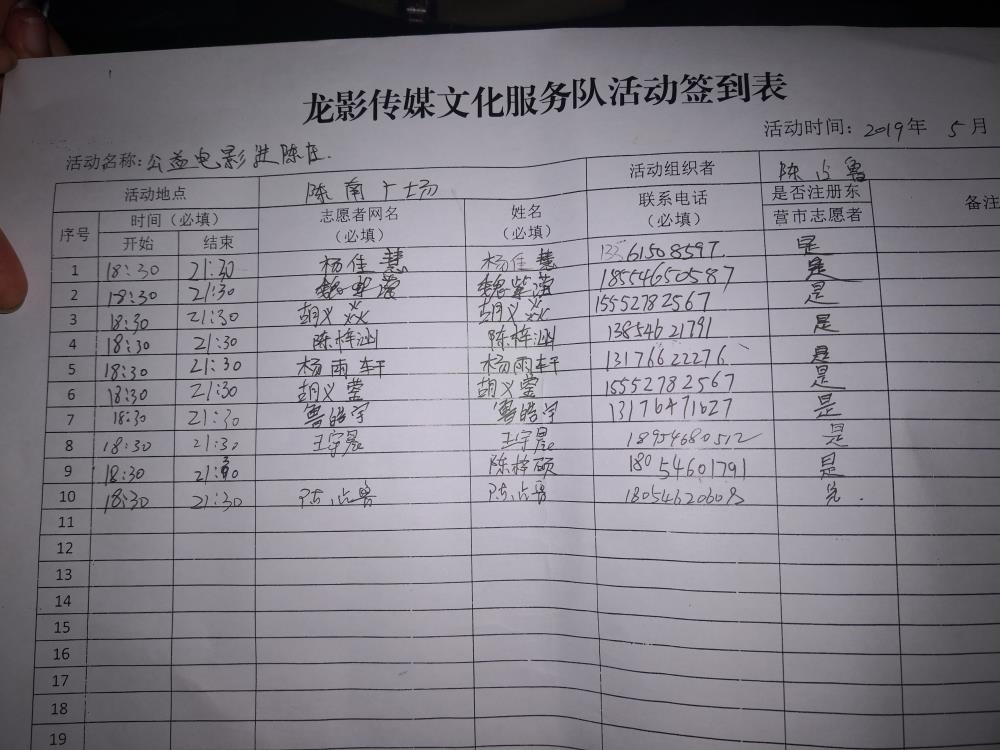 龙影传媒文化服务队活动签到表
活动时间: 2019年 5月
活动名称: 公益电影进陈庄.
活动地点 陈南广场 活动组织者 陈占鲁
序号 时间（必填） 志愿者网名（必填） 姓名（必填） 联系电话（必填） 是否注册东营市志愿者 备注
开始 结束
1 18:30 21:30 杨佳慧 杨佳慧 13561508597 是
2 18:30 21:30 魏紫滢 魏紫滢 18554650587 是
3 18:30 21:30 胡义焱 胡义焱 15552782567 是
4 18:30 21:30 陈梓涵 陈梓涵 13854621791 是
5 18:30 21:30 杨雨轩 杨雨轩 13176622276 是
6 18:30 21:30 胡义莹 胡义莹 15552782567 是
7 18:30 21:30 鲁皓宇 鲁皓宇 13176471627 是
8 18:30 21:30 王宇晨 王宇晨 18954680512 是
9 18:30 21:30 陈梓硕 18054601791 是
10 18:30 21:30 陈占鲁 陈占鲁 18054620608 是.
11
12
13
14
15
16
17
18
19